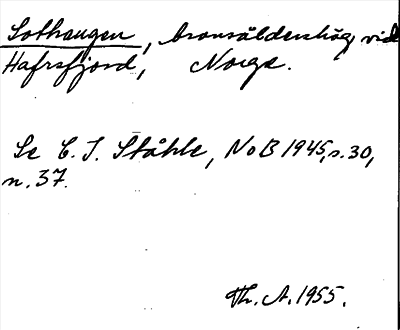 Sothaugen, bronsåldershög vid
Hafrsfjord, Norge.
Se C. I. Ståhle, NoB 1945, s. 30,
n. 37.
Th. A. 1955.